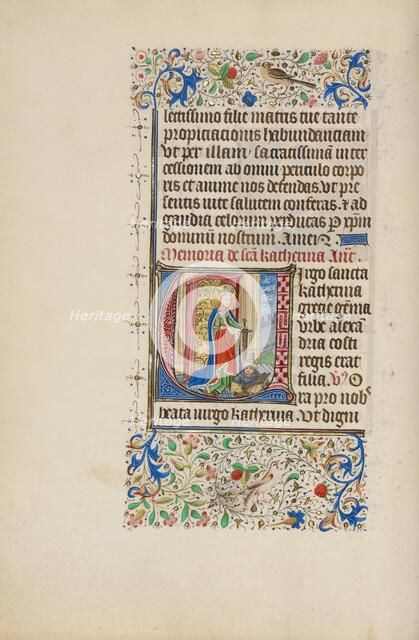 lectissimo filie matris tue tante
propiciacionis habundanciam
Vt per illam sacratissimā inter
cessionem ab omni periculo corpo
ris et anime nos defendas. vt pre
sentis vite salutem conferas. & ad
gaudia celorum perducas p xp̄m
dominū nostrum. Amen
Memoria de scā katherina Añ.
Virgo sancta
katherina
grecie gēma
vrbe alexa
dria costi
regis erat
filia. V̓. O
ra pro nobˢ
beata virgo katherina. Vt digni
Heritage
Heritage